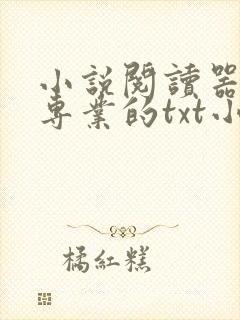 小說閱讀器
專業的txt小
橘紅糕